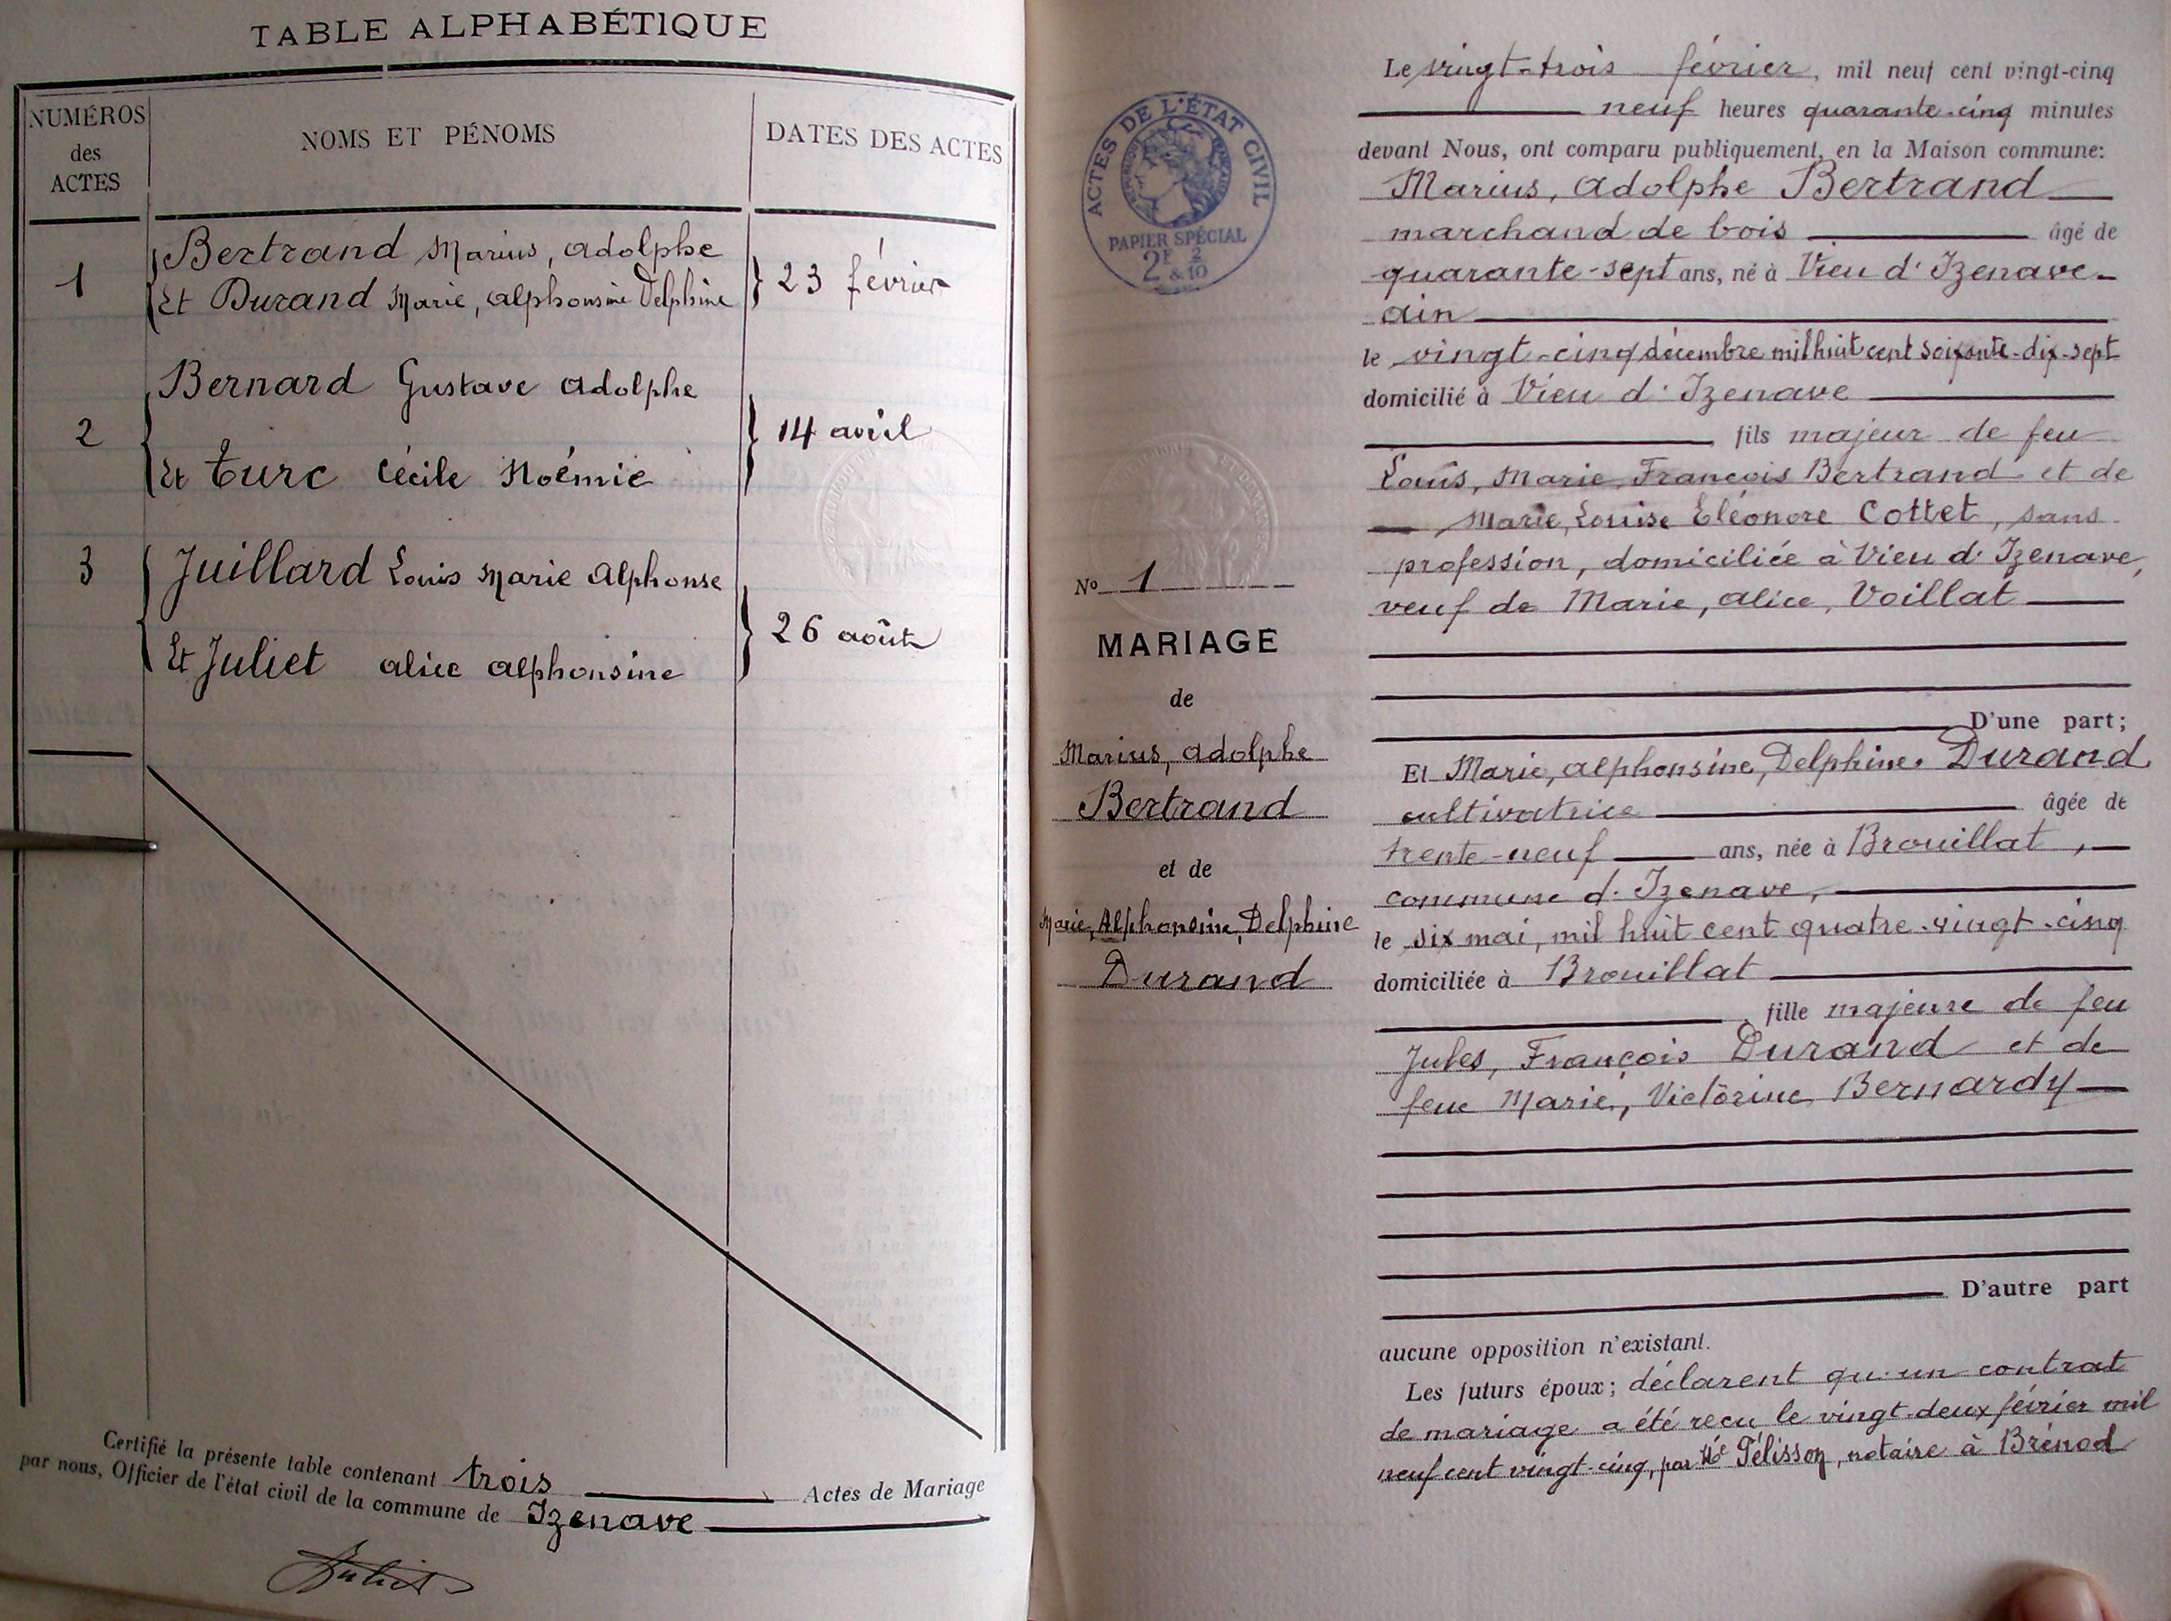 TABLE ALPHABÉTIQUE
NUMÉROS
des
ACTES
NOMS ET PÉNOMS
DATES DES ACTES
1
Bertrand Marius, Adolphe
Et Durand Marie, Alphonsine Delphine
23 février
2
Bernard Gustave Adolphe
Et Turc Cécile Noémie
14 avril
3
Juillard Louis Marie Alphonse
Et Juliet alice alphonsine
26 août
Certifié la présente table contenant trois Actes de Mariage
par nous, Officier de l'état civil de la commune de Izenave
ACTES DE L'ÉTAT CIVIL
PAPIER SPÉCIAL
2F 2
&10
No 1
MARIAGE
de
Marius, Adolphe
Bertrand
et de
Marie, Alphonsine, Delphine
Durand
Le vingt-trois février, mil neuf cent vingt-cinq
neuf heures quarante-cinq minutes
devant Nous, ont comparu publiquement, en la Maison commune:
Marius, Adolphe Bertrand
marchand de bois âgé de
quarante-sept ans, né à Vieu d'Izenave-
ain
le vingt-cinq décembre mil huit cent soixante-dix-sept
domicilié à Vieu d'Izenave
fils majeur de feu
Louis, Marie, François Bertrand et de
Marie, Louise Eléonore Cottet, sans
profession, domiciliée à Vieu d'Izenave,
veuf de Marie, alice, Voillat
D'une part;
Et Marie, alphonsine, Delphine. Durand
cultivatrice âgée de
trente-neuf ans, née à Brouillat,
commune d'Izenave,
le six mai, mil huit cent quatre-vingt-cinq
domiciliée à Brouillat
fille majeure de feu
Jules, François Durand et de
feue Marie, Victorine Bernardy
D'autre part
aucune opposition n'existant.
Les futurs époux; déclarent qu'un contrat
de mariage a été reçu le vingt-deux février mil
neuf cent vingt-cinq, par Me Pélisson, notaire à Brénod